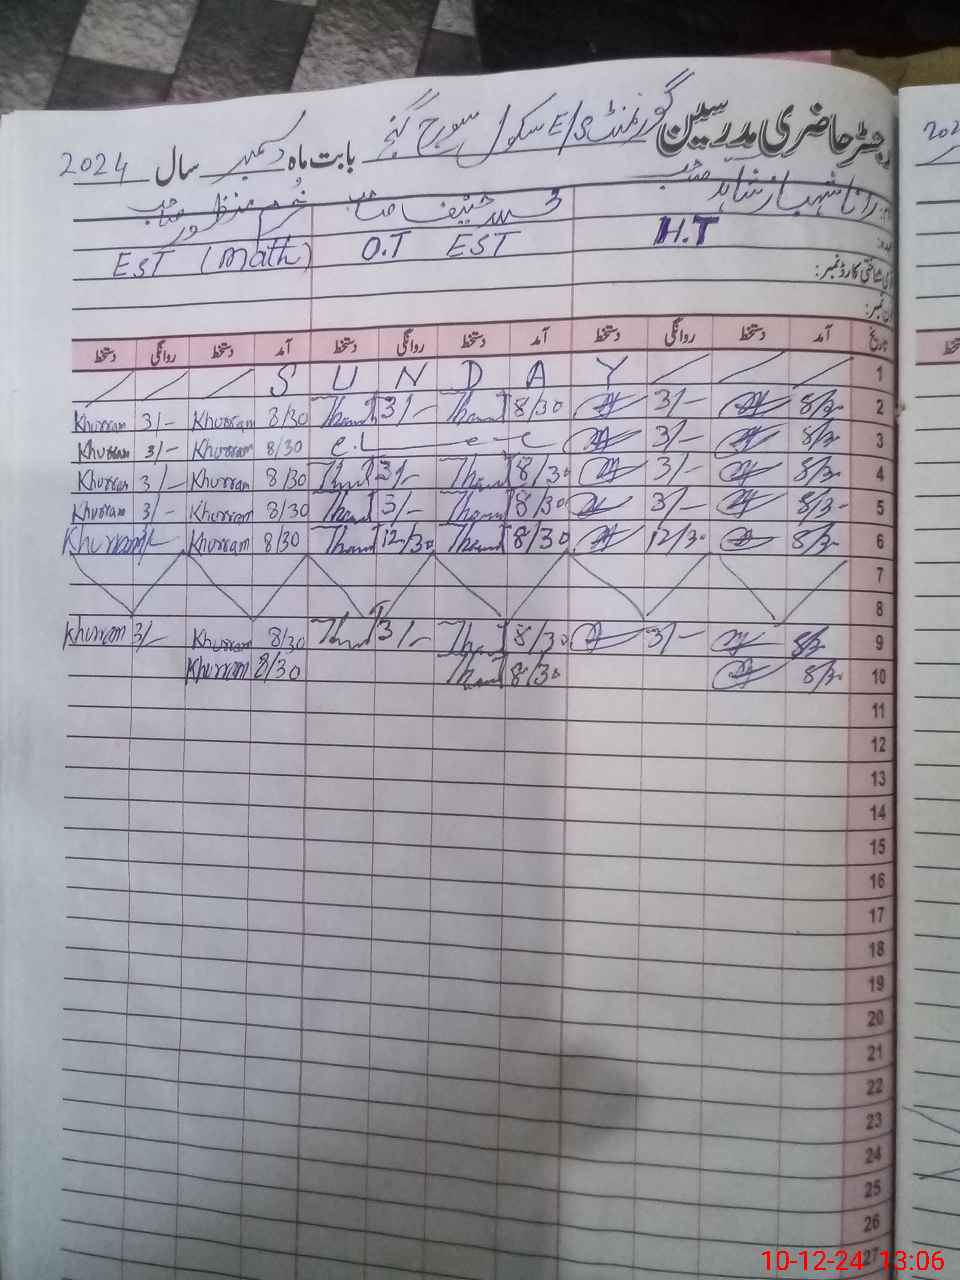 رجسٹر حاضری مدرسین گورنمنٹ E/S سکول سورج گنج بابت ماہ دسمبر سال 2024
رانا شہباز شاہد صاحب محمد حنیف صاحب خرم منظور صاحب
H.T O.T EST EST (Math)
شناختی کارڈ نمبر:
تاریخ آمد دستخط روانگی دستخط آمد دستخط روانگی دستخط آمد دستخط روانگی دستخط
S U N D A Y 1
Khurram 3/- Khurram 8/30 3/- 8/30 3/- 8/30 2
Khurram 3/- Khurram 8/30 3/- 8/30 3
Khurram 3/- Khurram 8/30 3/- 8/30 3/- 8/30 4
Khurram 3/- Khurram 8/30 3/- 8/30 3/- 8/30 5
Khurram Khurram 8/30 12/30 8/30 12/30 8/30 6
7
8
Khurram 3/- Khurram 8/30 3/- 8/30 3/- 8/30 9
Khurram 8/30 8/30 8/30 10
11
12
13
14
15
16
17
18
19
20
21
22
23
24
25
26
27
10-12-24 13:06